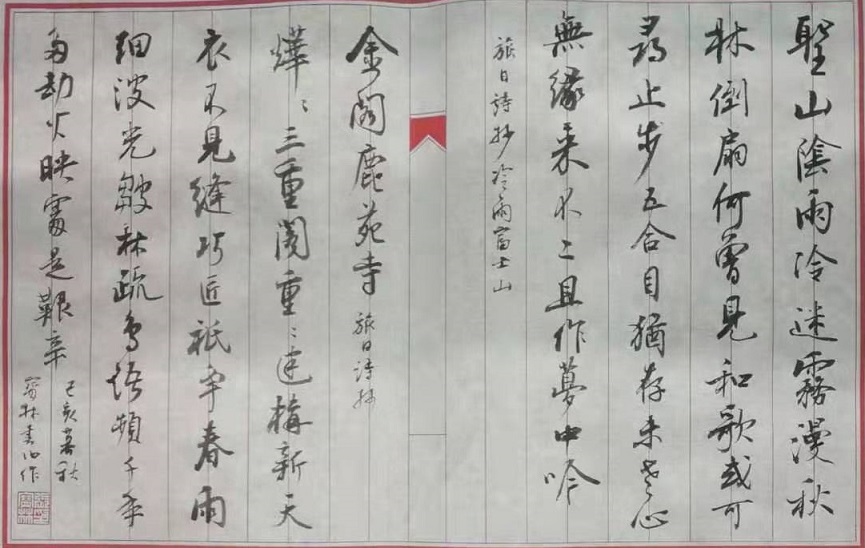 聖山陰雨冷迷霧漫秋
林倒扇何曾見和歌或可
尋止步五合目猶存未老心
無緣来不二且作夢中吟
旅日詩抄冷雨富士山
金閣鹿苑寺 旅日詩抄
燁〻三重閣重〻建構新天
衣不見縫巧匠祇争春雨
细波光皺林疏鳥語頻千年
多劫火映是艱辛
己亥暮秋
林作